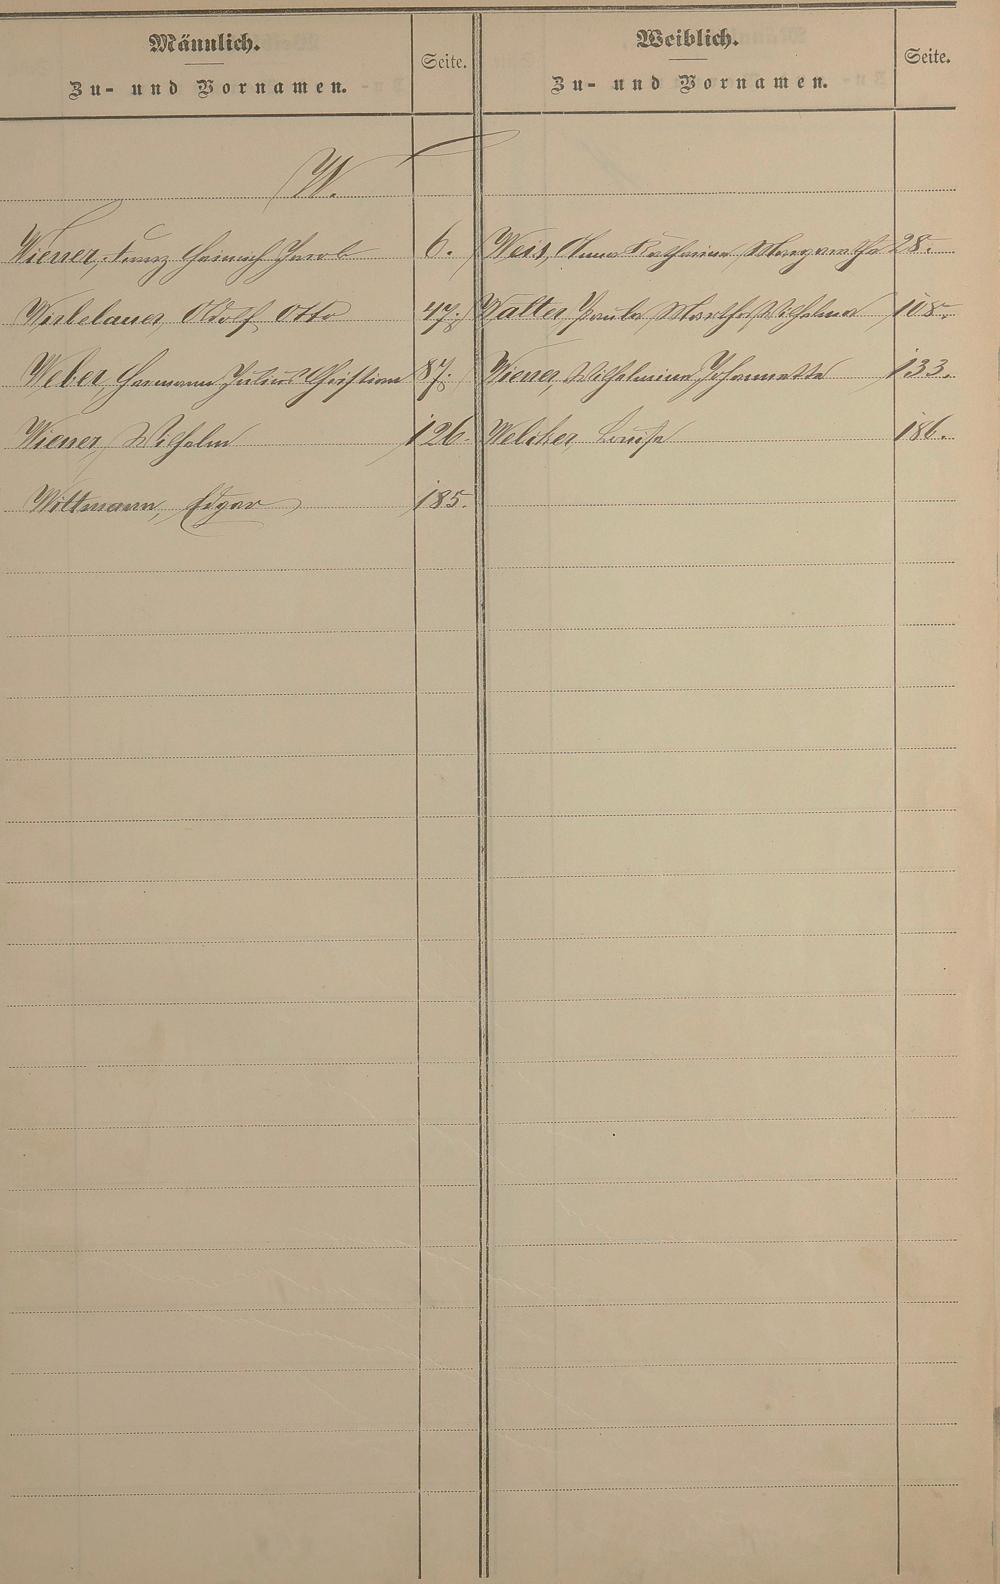 Männlich.
Zu- und Vornamen.
Seite.
Weiblich.
Zu- und Vornamen.
Seite.
W.
Wiener, Franz Heinrich Jacob 6.
Wirbelauer, Adolf Otto 47.
Weber, Hermann Julius Christian 87.
Wiener, Wilhelm 126.
Wittmann, Edgar 185.
Weis, Anna Katharina Margarethe 28.
Walter, Paula Martha Wilhelma 108.
Wiener, Wilhelmine Johannette 133.
Welker, Louise 186.